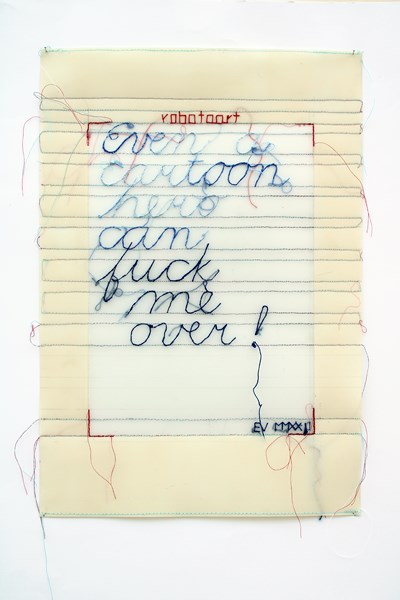 robotaart
Even a
cartoon
hero
can
fuck
me
over!
EV